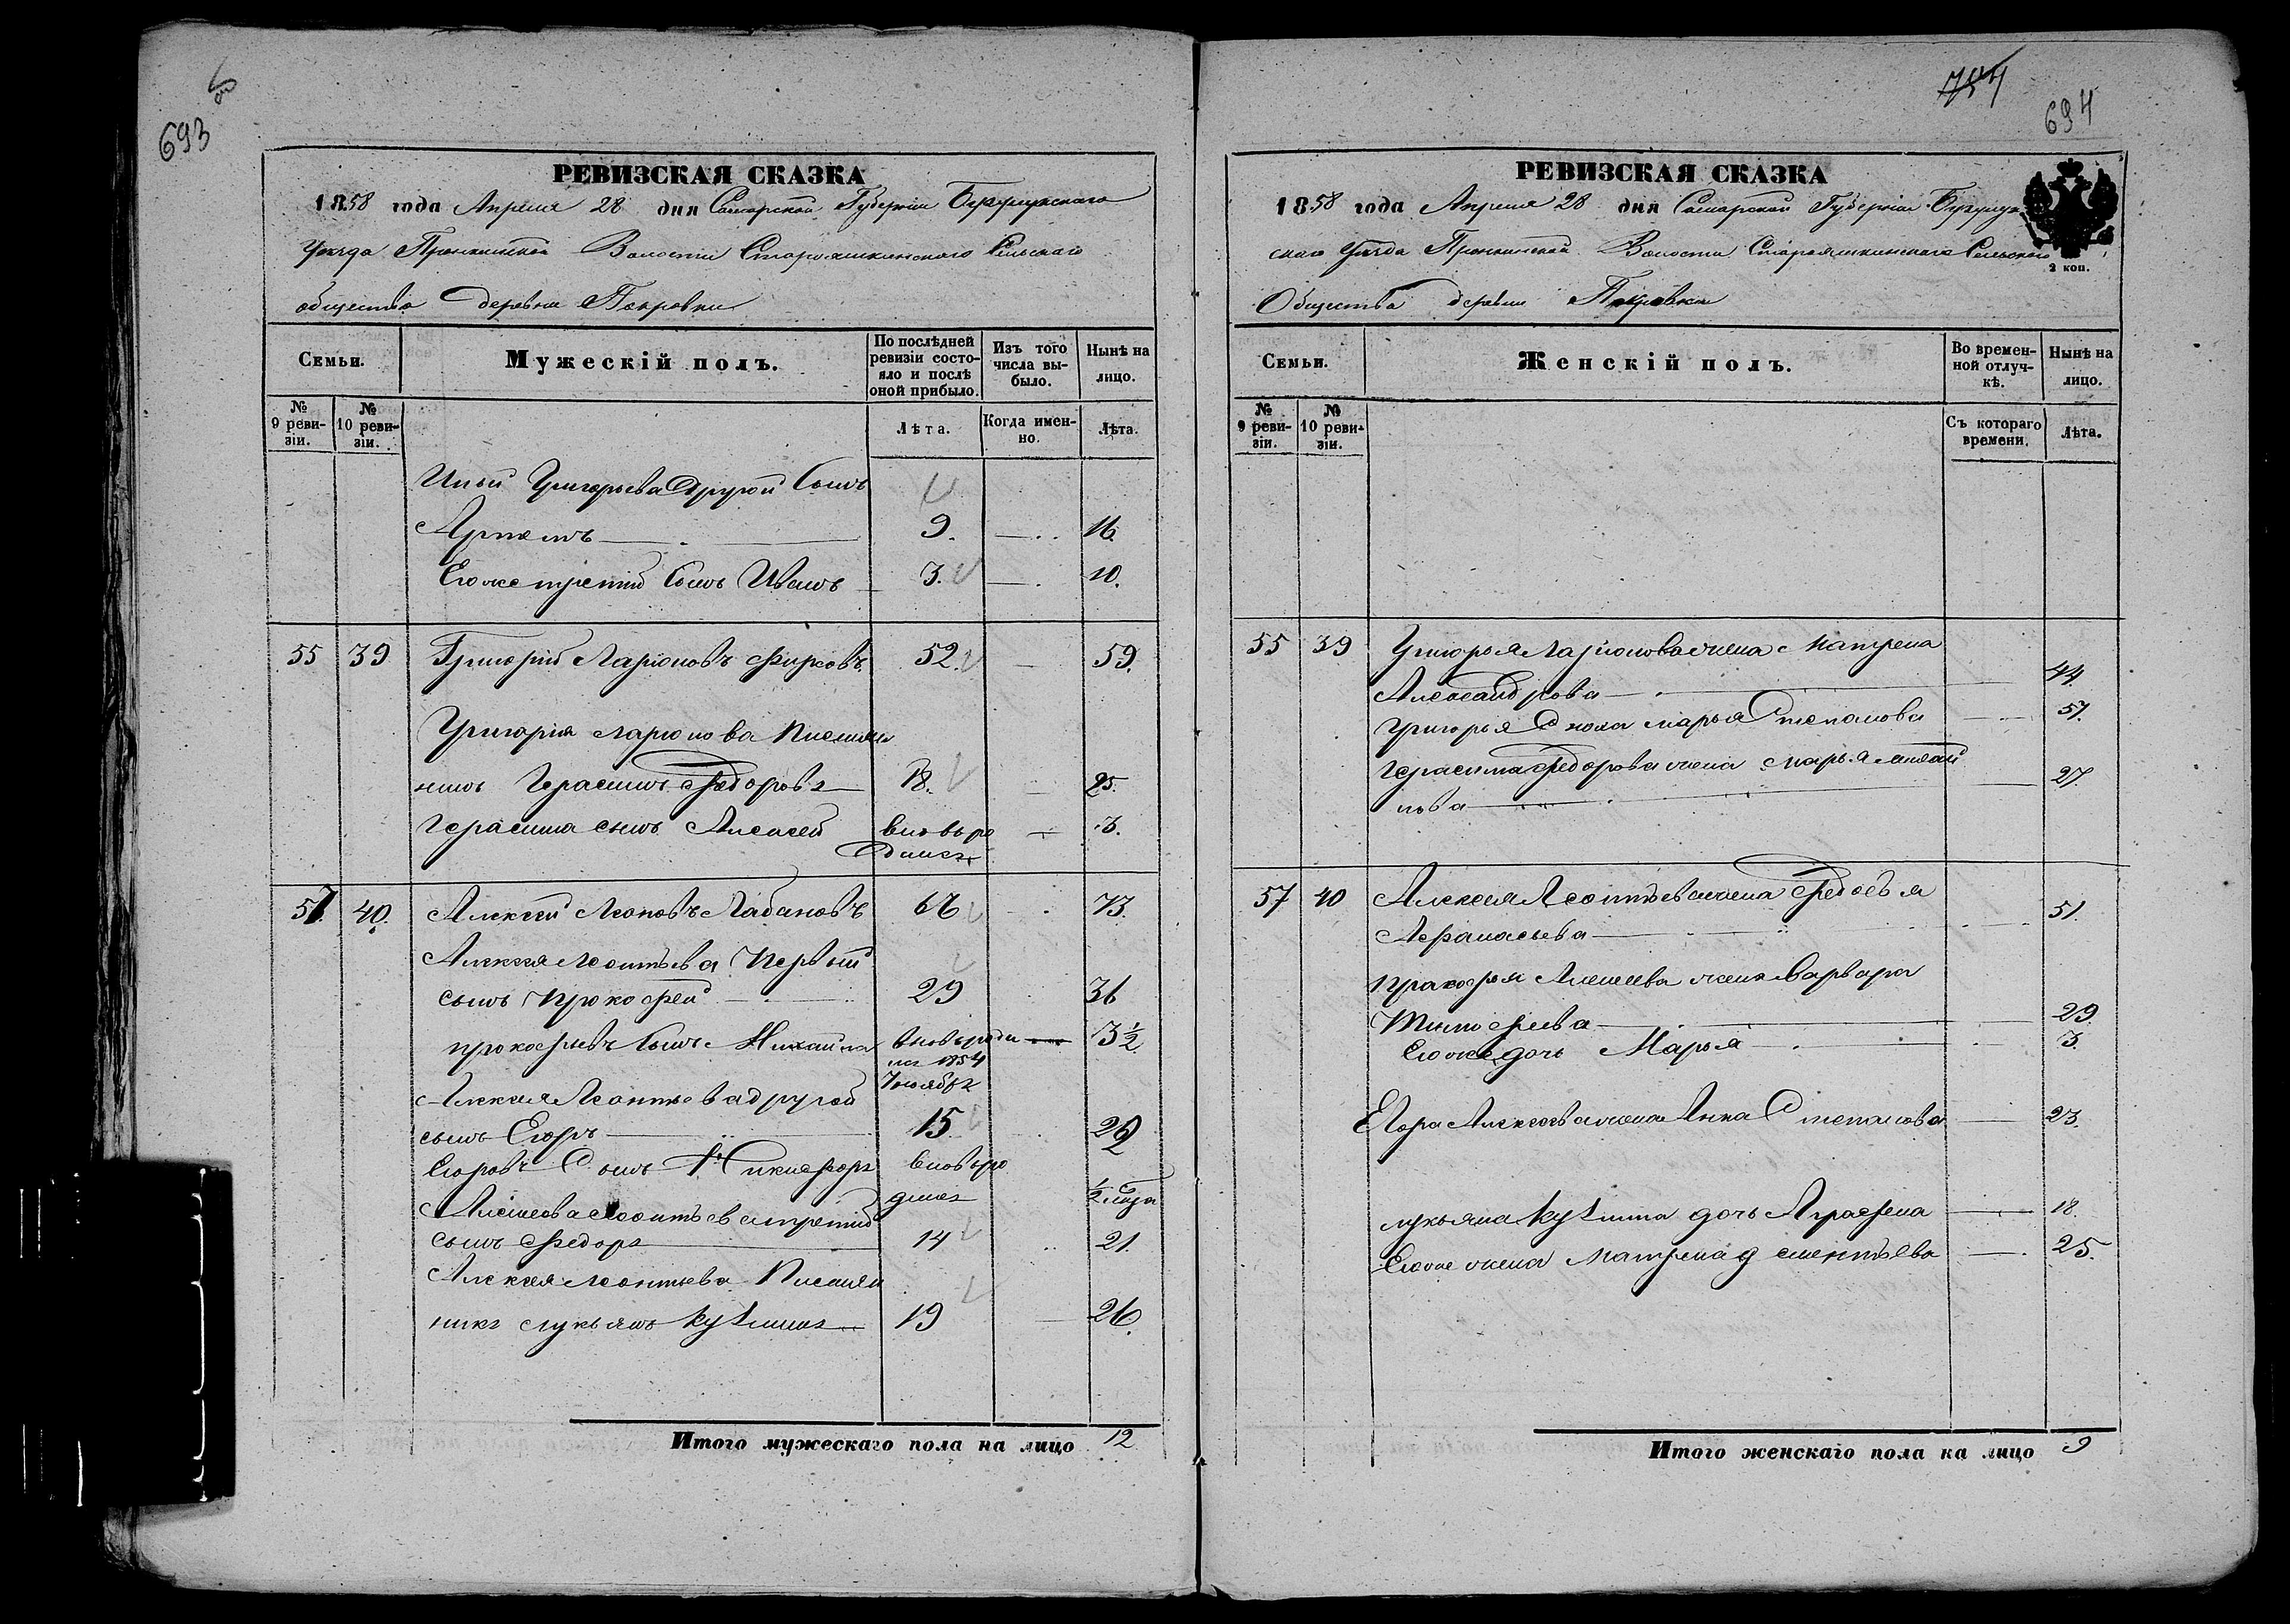 693
РЕВИЗСКАЯ СКАЗКА
1858 года Апреля 28 дня Самарской Губернiи Бугурусланскаго
уезда Пронькинской Волости Староякшинскаго Сельскаго
общества деревни Покровки
Семьи.
Мужескiй полъ.
По послѣдней ревизiи состояло и послѣ оной прибыло.
Изъ того числа выбыло.
Нынѣ на лицо.
№ 9 ревизiи.
№ 10 ревизiи.
Лѣта.
Когда именно.
Лѣта.
Григорьева другой Сынъ
Артемъ 9. 16.
Егоже третiй Сынъ Иванъ 3. 10.
55 39 Григорiй Ларiоновъ Фирсовъ 52. 59.
Григорiя Ларiонова племян
никъ Герасимъ Федоровъ 18. 25.
Герасима сынъ Алексей вновь ро 3.
дился
57. 40. Алексей Леоновъ Лабановъ 66 73.
Алексея Леонтьева Первый
сынъ Прокофей 29 36
Прокофьевъ Сынъ Михаила вновь роди 3 1/2
лся 1854
Ноября
Алексея Леонтьева другой
сынъ Егоръ 15 22
Егоровъ Сынъ Никифоръ вновь ро
дился 1/2 года
Алексея Леонтьева третiй
сынъ Федоръ 14 21.
Алексея Леонтьева Племян
никъ Лукьянъ Кузминъ 19 26.
Итого мужескаго пола на лицо 12
754
694
РЕВИЗСКАЯ СКАЗКА
1858 года Апреля 28 дня Самарской Губернiи Бугуруслан
скаго уезда Пронькинской Волости Староякшинскаго Сельскаго
2 коп.
Общества деревни Покровки
Семьи.
Женскiй полъ.
Во временной отлучкѣ.
Нынѣ на лицо.
№ 9 ревизiи.
№ 10 ревизiи.
Съ котораго времени.
Лѣта.
55 39 Григорья Ларiонова жена Матрена
Александрова 44.
Григорья Сноха Марья Степанова 51.
Герасима Федорова жена Марья
нова 27.
57 40 Алексея Леонтьева жена Федосья
Афанасьева 51.
Прокофья Алексеева жена Варвара
Тимофеева 29.
Егоже дочь Марья 3.
Егора Алексеева жена Анна Степанова 23.
Лукьяна Кузмина дочь Аграфена 18.
Егоже жена Матрена Дементьева 25.
Итого женскаго пола на лицо 9